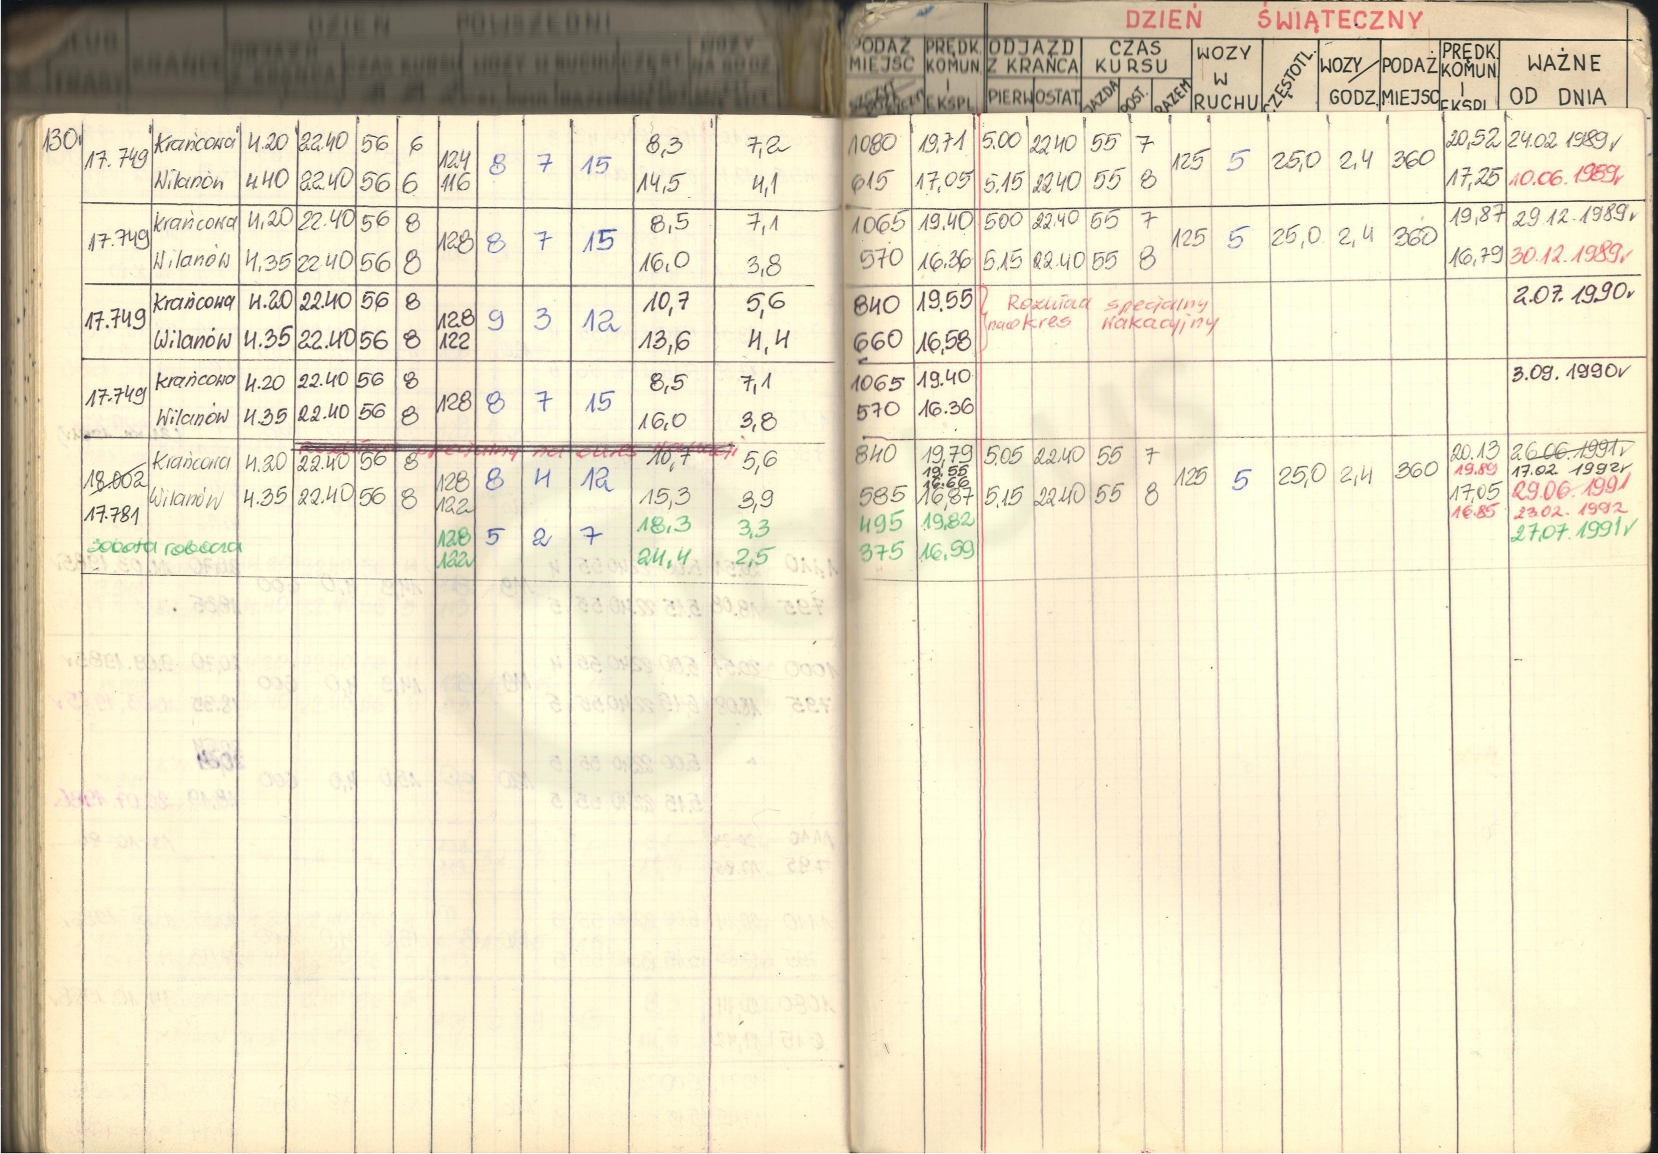 DZIEŃ POWSZEDNI
DZIEŃ ŚWIĄTECZNY
KRAŃCE
ODJAZD Z KRAŃCA
CZAS KURSU
WOZY W RUCHU
PODAŻ MIEJSC
PRĘDK. KOMUN. I EKSPL.
ODJAZD Z KRAŃCA
PIERW OSTAT.
CZAS KURSU
JAZDA POST. RAZEM
WOZY W RUCHU
CZĘSTOTL.
WOZY/GODZ.
PODAŻ MIEJSC
PRĘDK. KOMUN. I EKSPL.
WAŻNE OD DNIA
130 17.749 Krańcowa 4.20 22.40 56 6 124 8 7 15 8,3 7,2 1080 19,71 5.00 22.40 55 7 125 5 25,0 2,4 360 20,52 24.02 1989r
Wilanów 4.40 22.40 56 6 116 14,5 4,1 615 17,05 5.15 22.40 55 8 17,25 10.06.1989r
17.749 Krańcowa 4.20 22.40 56 8 128 8 7 15 8,5 7,1 1065 19.40 500 22.40 55 7 125 5 25,0 2,4 360 19,87 29.12.1989r
Wilanów 4.35 22.40 56 8 16,0 3,8 570 16.36 5.15 22.40 55 8 16,79 30.12.1989r
17.749 Krańcowa 4.20 22.40 56 8 128 9 3 12 10,7 5,6 840 19,55 Rozkład specjalny 2.07.1990r
Wilanów 4.35 22.40 56 8 122 13,6 4,4 660 16,58 na okres wakacyjny
17.749 Krańcowa 4.20 22.40 56 8 128 8 7 15 8,5 7,1 1065 19.40 3.09.1990r
Wilanów 4.35 22.40 56 8 16,0 3,8 570 16.36
specjalny na okres
18.002 Krańcowa 4.20 22.40 56 8 128 8 4 12 10,7 5,6 840 19,79 5.05 22.40 55 7 125 5 25,0 2,4 360 20.13 26.06.1991r
19.55 19.89 17.02 1992r
16.66
Wilanów 4.35 22.40 56 8 122 15,3 3,9 585 16,87 5.15 22.40 55 8 17,05 29.06.1991
17.781 16.85 23.02.1992
sobota robocza 128 5 2 7 18,3 3,3 495 19,82 27.07.1991r
122 24,4 2,5 375 16.59